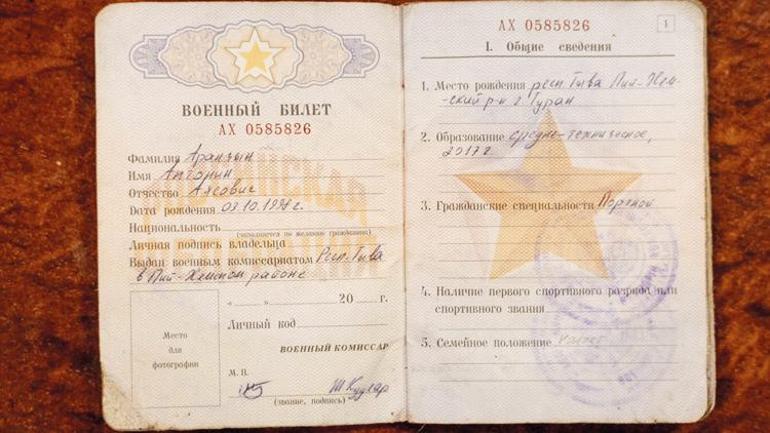 ВОЕННЫЙ БИЛЕТ
АХ 0585826
Фамилия Аранзын
Имя
Отчество Алсович
Дата рождения 03.10.1998 г.
Национальность
(заполняется по желанию гражданина)
Личная подпись владельца
Выдан военным комиссариатом Респ. Тыва
в Пий-Хемском районе
„ “ 20 г.
Личный код
ВОЕННЫЙ КОМИССАР
Место
для
фотографии
М. П.
(звание, подпись)
АХ 0585826
1
I. Общие сведения
1. Место рождения респ Тыва Пий-Хем-
-ский р-н г Туран
2. Образование средне-техническое,
2017 г.
3. Гражданские специальности
4. Наличие первого спортивного разряда или
спортивного звания
5. Семейное положение